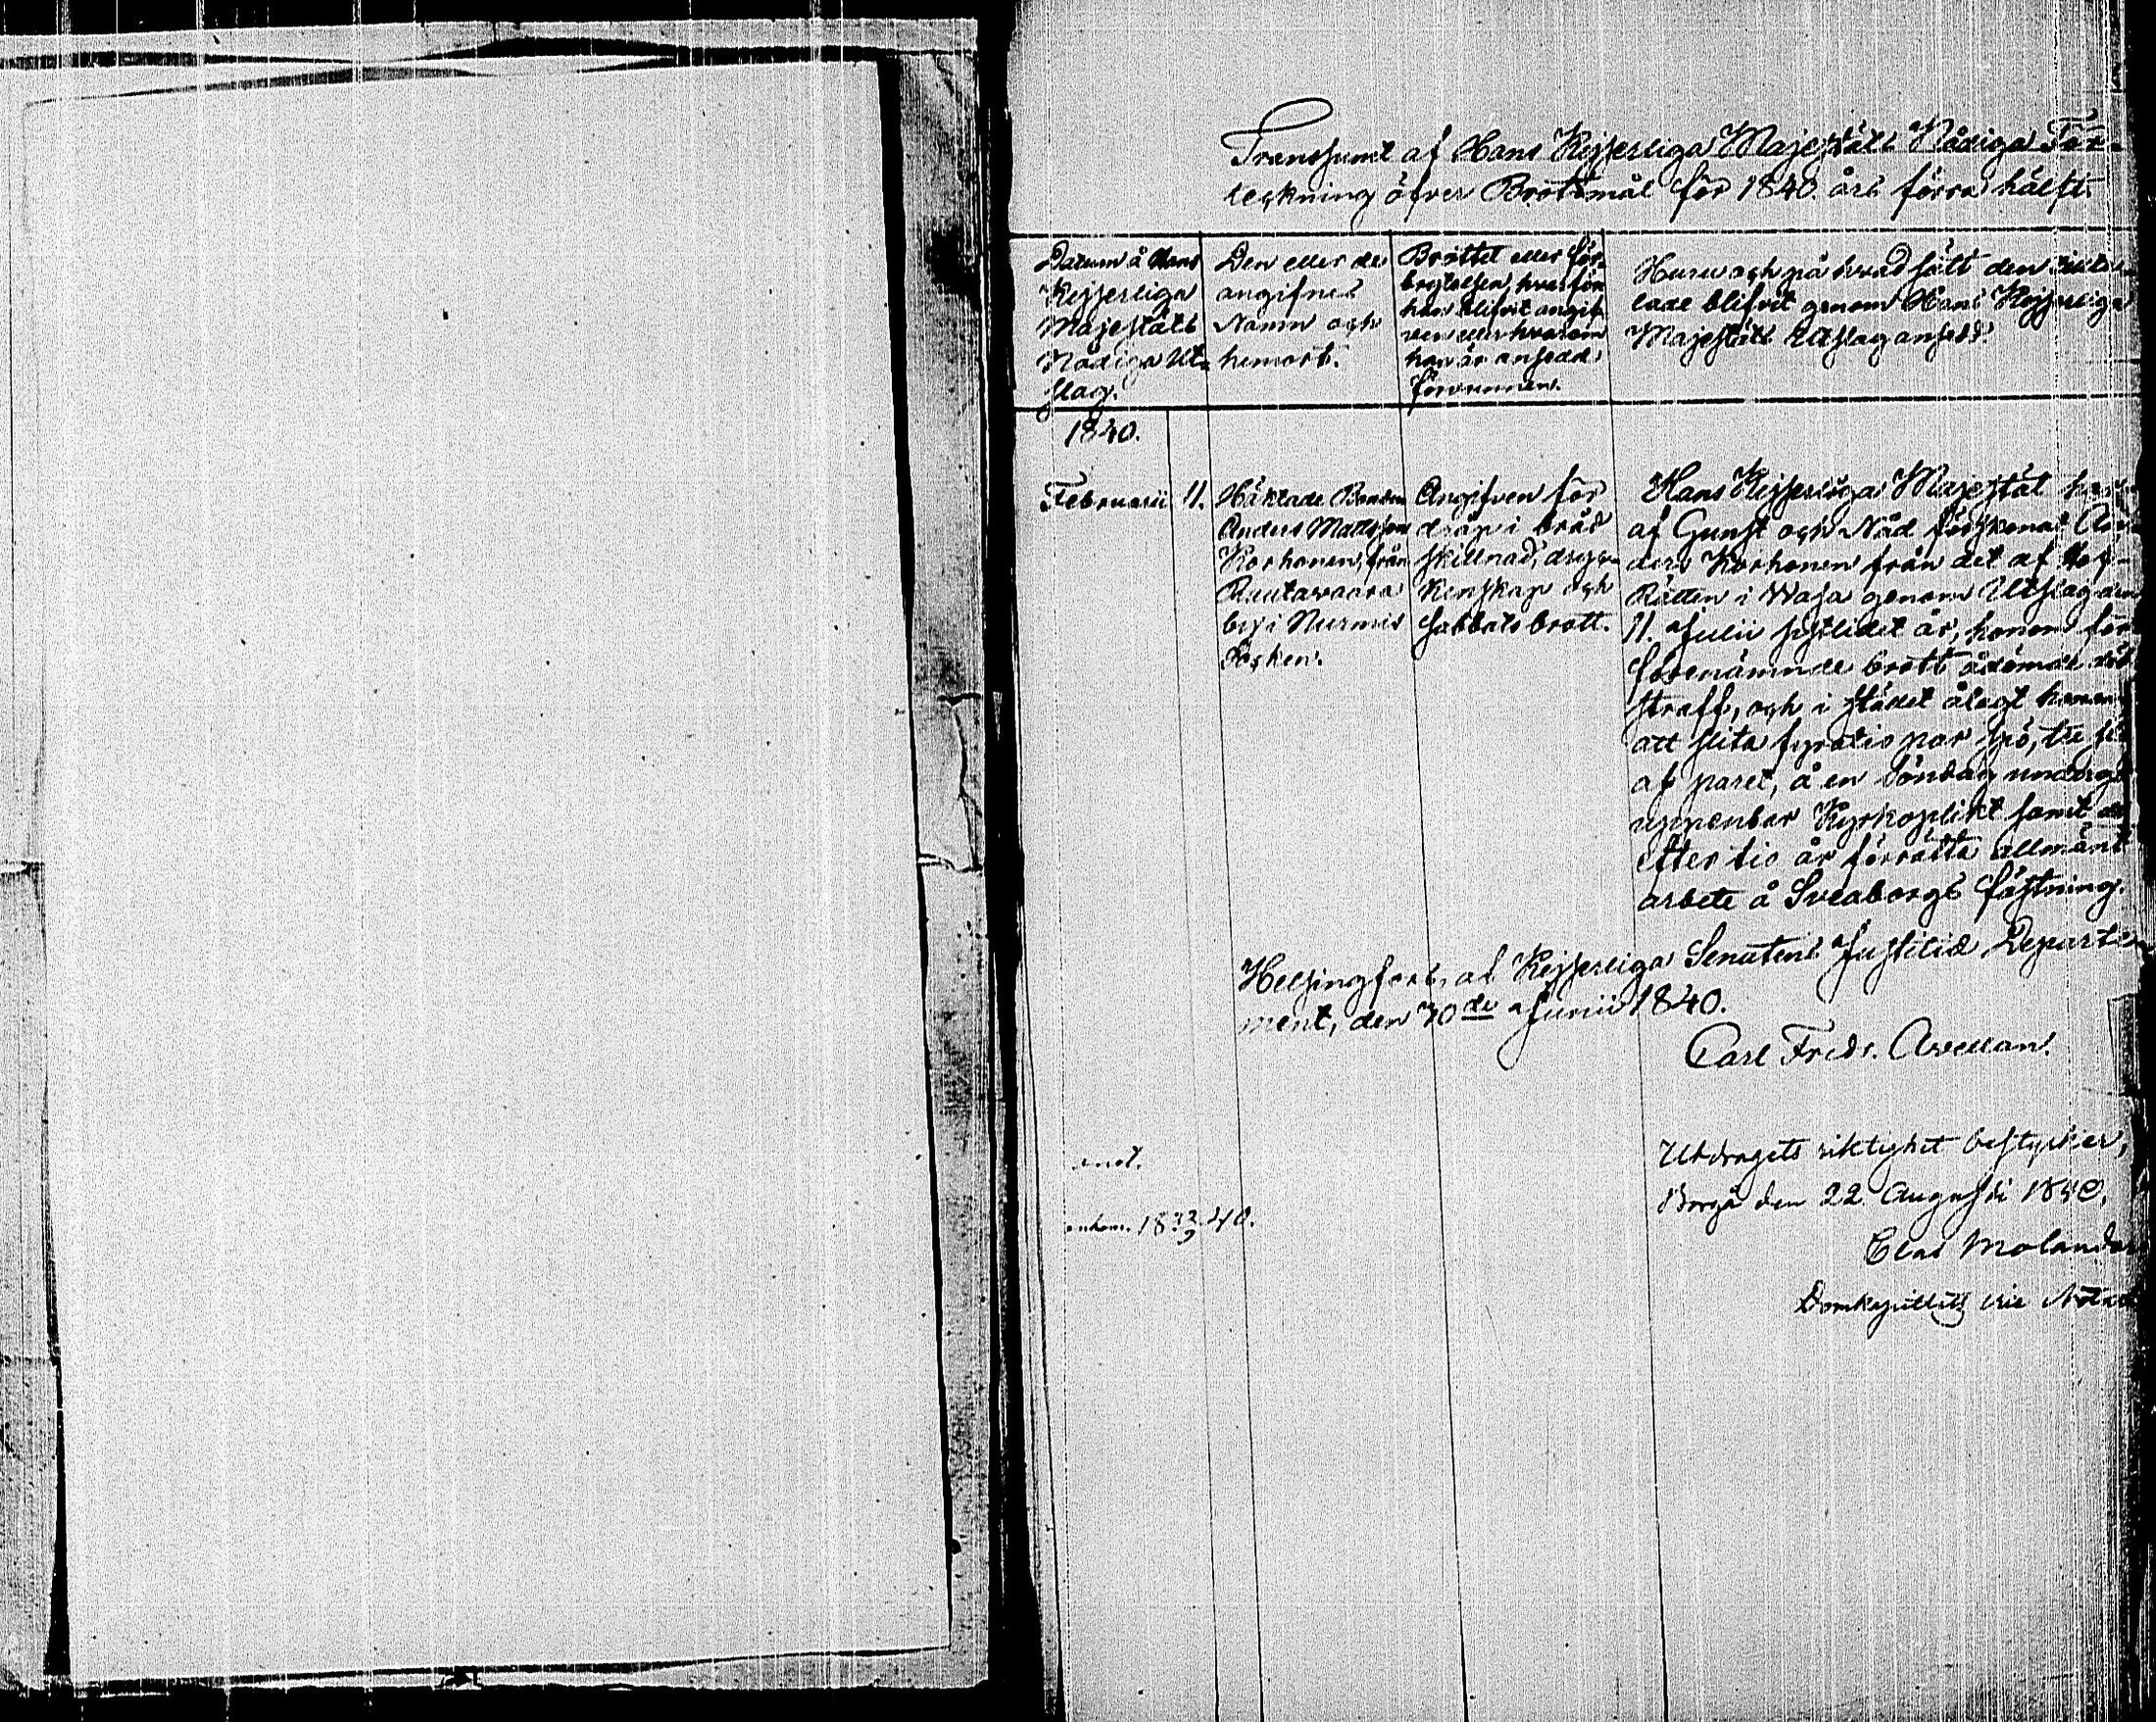 Transsumt af Hans Kejserliga Majestäts Nådiga För-
teckning öfver Brottmål för 1840 års förra hälft.
Datum å Hans
Kejserliga
Majestäts
Nådiga Ut-
slag.
Den eller de
angifnes
Namn och
hemort.
Brottet eller för-
brytelsen, hvarför
han blifvit angif-
ven eller hvarom
han är ansedd
förvunnen.
Huru och på hvad sätt den tillta-
lade blifvit genom Hans Kejserliga
Majestäts Utslag ansedd.
1840.
Februarii 11.
Häktade Bonden
Anders Mattsson
Korhonen, från
Rautavaara
by i Nurmis
Socken.
Angifven för
dråp i bråd
skillnad, dryc-
kenskap och
sabbatsbrott.
Hans Kejserliga Majestät har
af Gunst och Nåd förskonat An-
ders Korhonen från det af Hof-
Rätten i Wasa genom Utslag den
11. Julii sistlidet år, honom för
förenämnde brott ådömde döds
straff, och i stället ålagt honom
att slita fyratio par spö, tre slag
af paret, å en Söndag undergå
uppenbar Kyrkoplikt samt der
efter tio år förrätta allmänt
arbete å Sveaborgs fästning.
Helsingfors, af Kejserliga Senatens Justitiæ Departe-
ment, den 30de Junii 1840.
Carl Fredr. Avellan.
Utdragets riktighet bestyrker,
Borgå den 22 Augusti 1840.
Clas Molander
Domkapitlets vice Notar